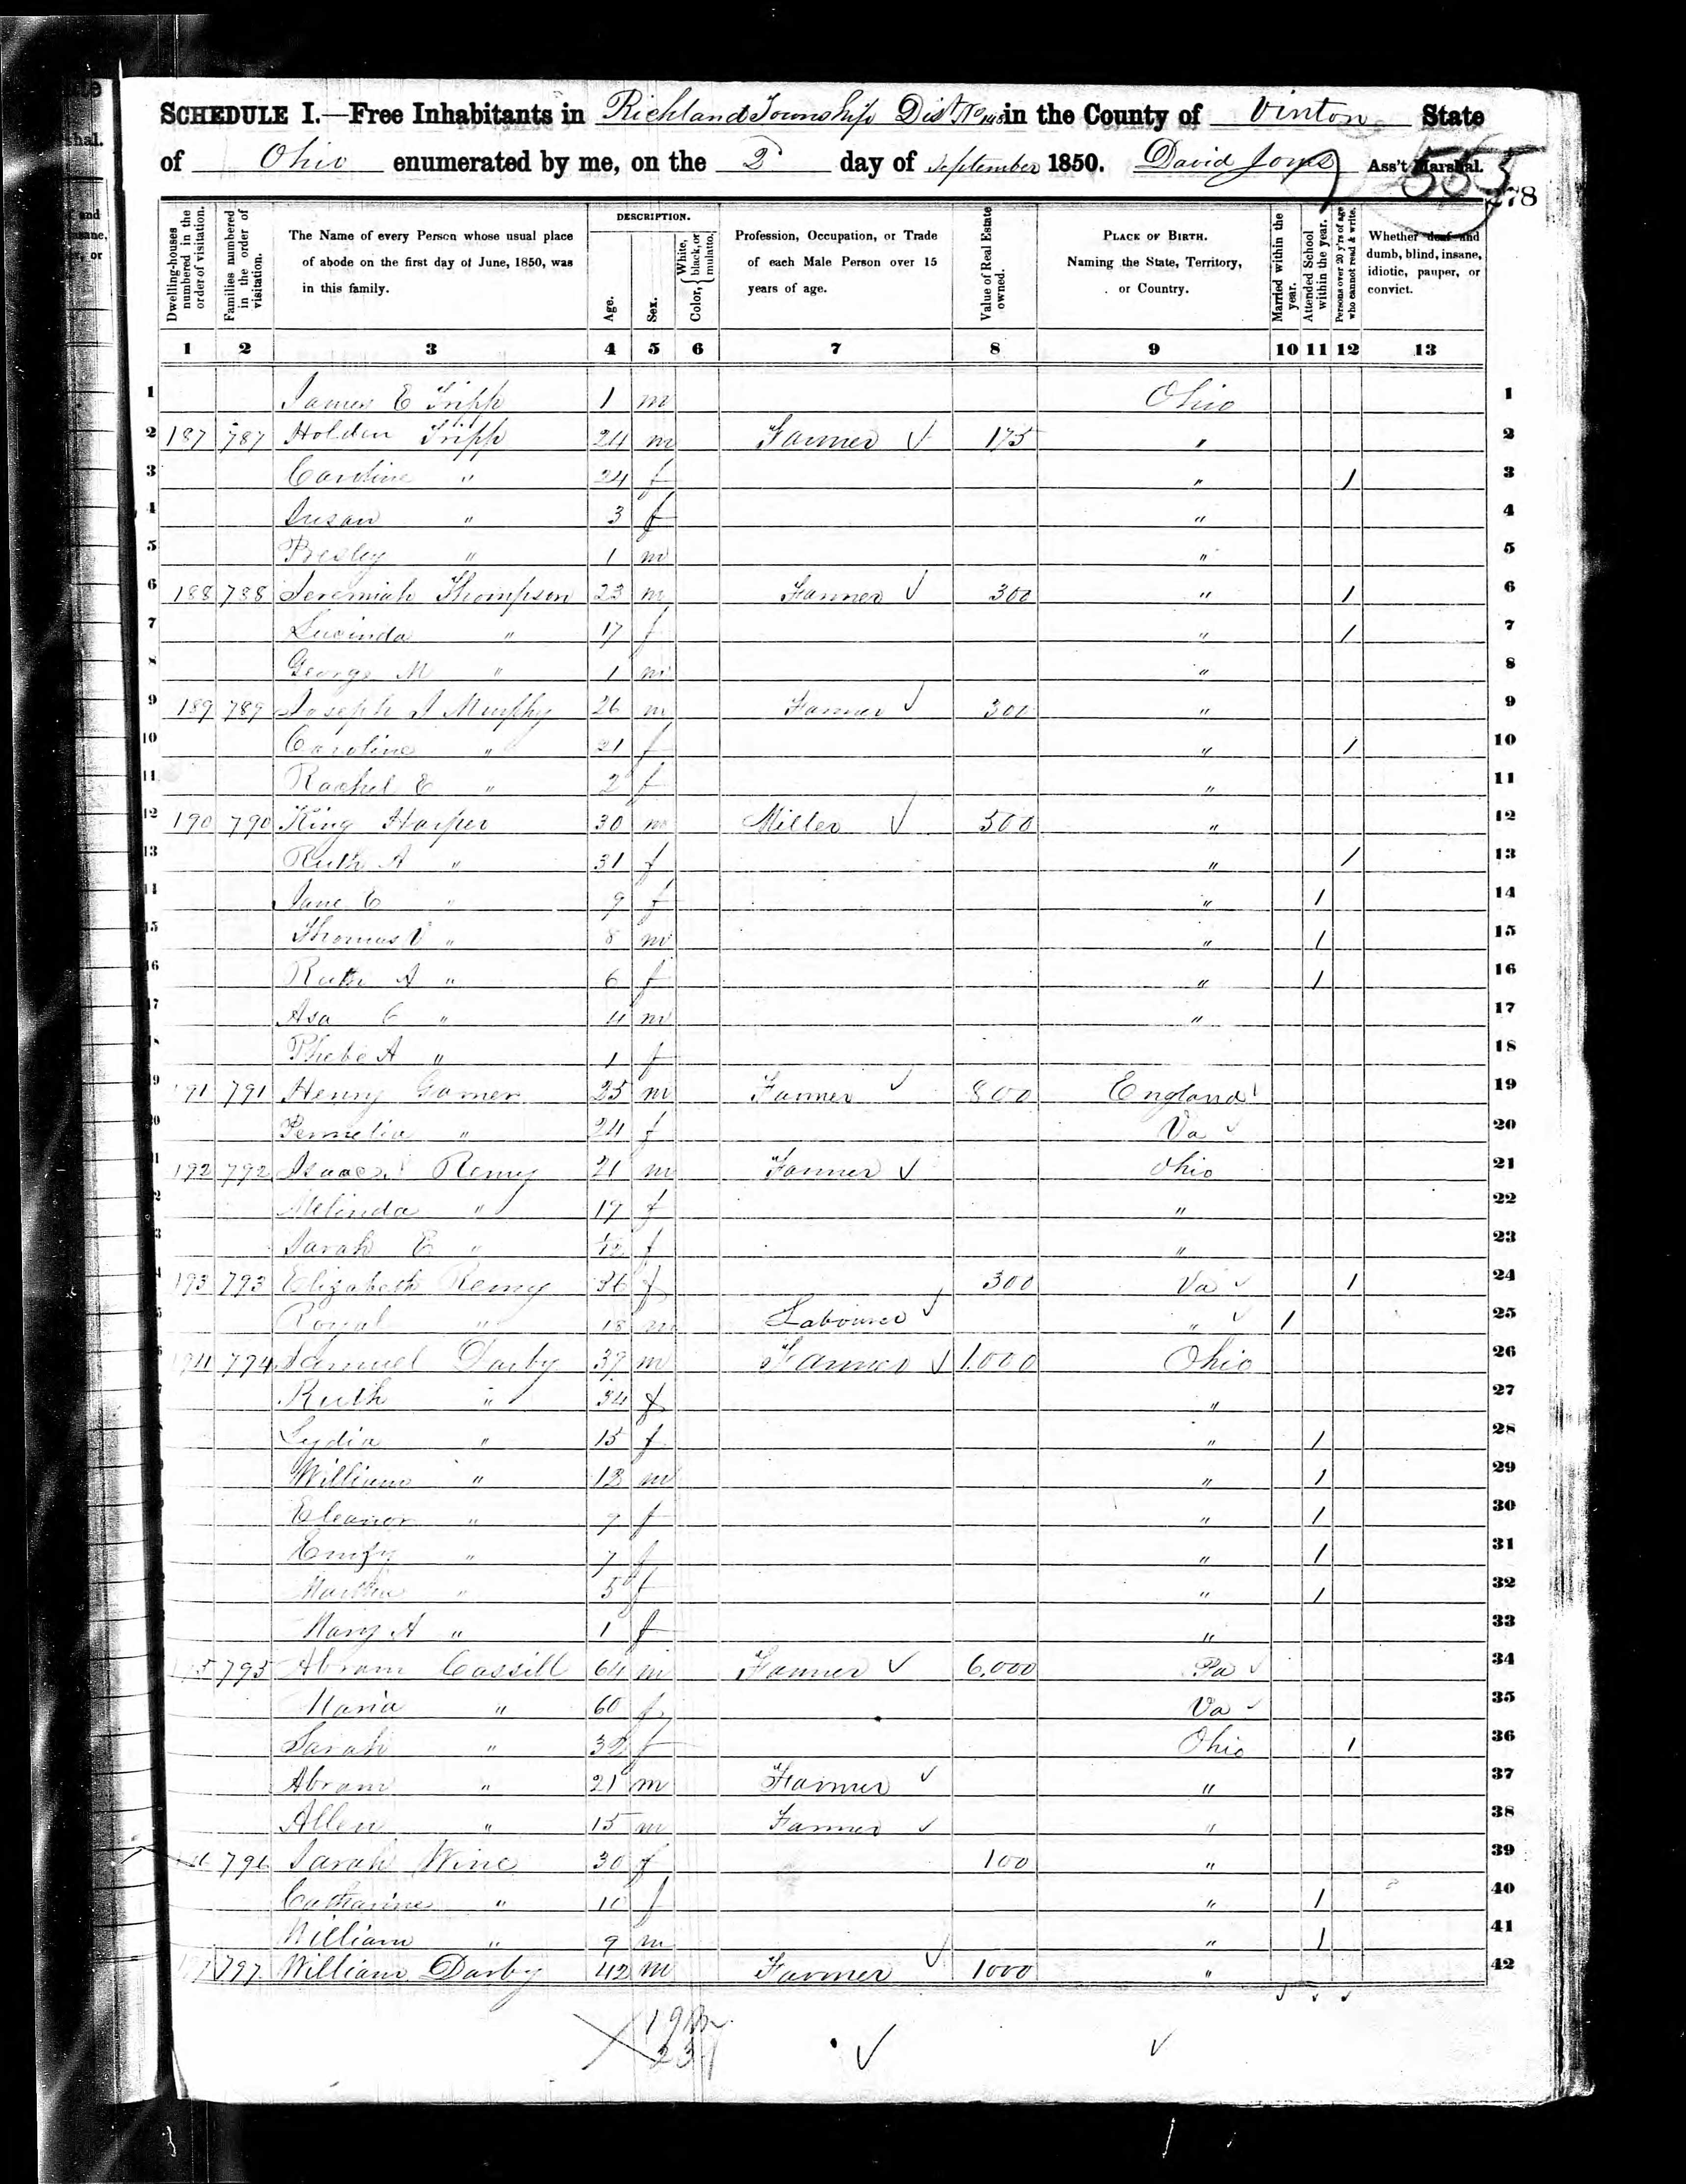 SCHEDULE I.—Free Inhabitants in Richland Township Dist No in the County of Vinton State
of Ohio enumerated by me, on the 2 day of September 1850. David Ass't Marshal.
555
278
Dwelling-houses numbered in the order of visitation.
Families numbered in the order of visitation.
The Name of every Person whose usual place of abode on the first day of June, 1850, was in this family.
DESCRIPTION.
Age.
Sex.
Color, { White, black, or mulatto.
Profession, Occupation, or Trade of each Male Person over 15 years of age.
Value of Real Estate owned.
PLACE OF BIRTH. Naming the State, Territory, or Country.
Married within the year.
Attended School within the year.
Persons over 20 y'rs of age who cannot read & write.
Whether deaf and dumb, blind, insane, idiotic, pauper, or convict.
1 2 3 4 5 6 7 8 9 10 11 12 13
1 James E Tripp 1 m Ohio 1
2 187 787 Holden Tripp 24 m Farmer ✓ 175 " 2
3 Caroline " 24 f " 1 3
4 Susan " 3 f " 4
5 Presley " 1 m " 5
6 188 788 Jeremiah Thompson 23 m Farmer ✓ 300 " 1 6
7 Lucinda " 17 f " 1 7
8 George M " 1 m " 8
9 189 789 Joseph J Murphy 26 m Farmer ✓ 300 " 9
10 Caroline " 21 f " 1 10
11 Rachel E " 2 f " 11
12 190 790 King Harper 30 m Miller ✓ 500 " 12
13 Ruth A " 31 f " 1 13
14 Jane E " 9 f " 1 14
15 Thomas V " 8 m " 1 15
16 Ruth A " 6 f " 1 16
17 Asa C " 4 m " 17
18 Phebe A " 1 f 18
19 191 791 Henry Garner 25 m Farmer ✓ 800 England 19
20 Permelia " 24 f Va ✓ 20
21 192 792 Isaac Remy 21 m Farmer ✓ Ohio 21
22 Melinda " 17 f " 22
23 Sarah E " f " 23
24 193 793 Elizabeth Remy 36 f 300 Va ✓ 1 24
25 Royal " 18 m Labourer ✓ " ✓ 1 25
26 194 794 Samuel Darby 37 m Farmer ✓ 1.000 Ohio 26
27 Ruth " 34 f " 27
28 Lydia " 15 f " 1 28
29 William " 12 m " 1 29
30 Eleanor " 9 f " 1 30
31 " 7 f " 1 31
32 Martha " 5 f " 1 32
33 Mary A " 1 f " 33
34 795 Abram Cassill 64 m Farmer ✓ 6.000 Pa ✓ 34
35 Maria " 60 f Va ✓ 35
36 Sarah " 32 f Ohio 1 36
37 Abram " 21 m Farmer ✓ " 37
38 Allen " 15 m Farmer ✓ " 38
39 796 Sarah Winc 30 f 100 " 39
40 Catharine " 10 f " 1 40
41 William " 9 m " 1 41
42 797 William Darby 42 m Farmer ✓ 1000 " 42
19 m
23 f